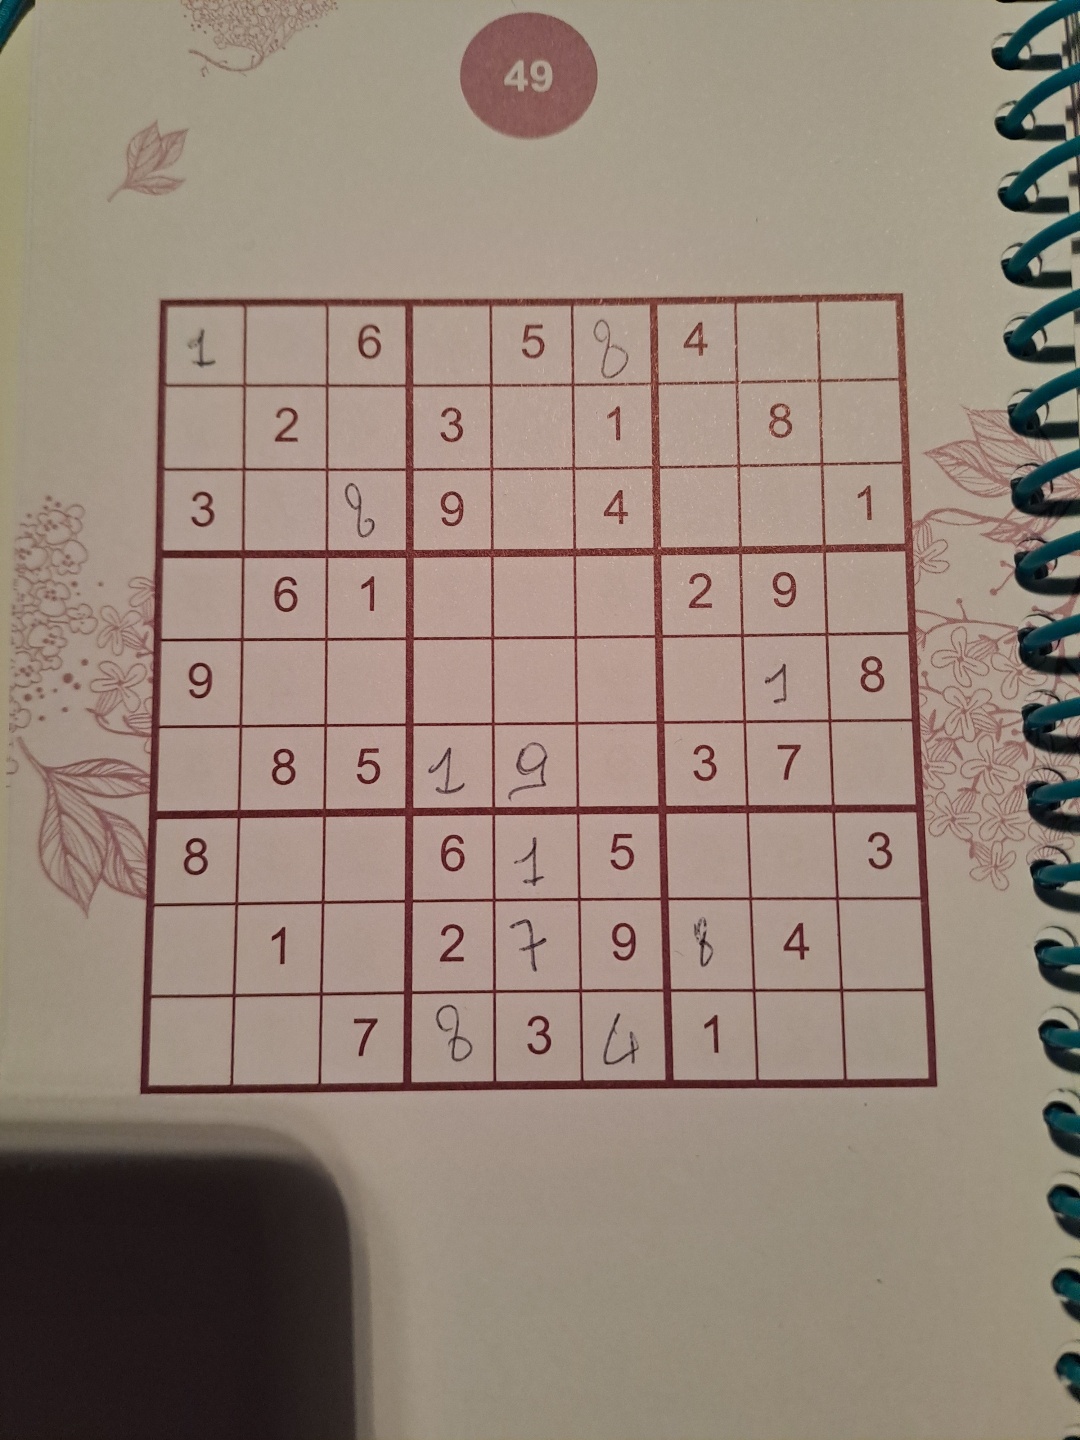 49
1 6 5 8 4
2 3 1 8
3 8 9 4 1
6 1 2 9
9 1 8
8 5 1 9 3 7
8 6 1 5 3
1 2 7 9 8 4
7 8 3 4 1